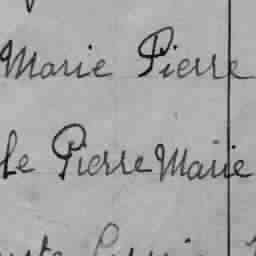 Marie Pierre
le Pierre Marie